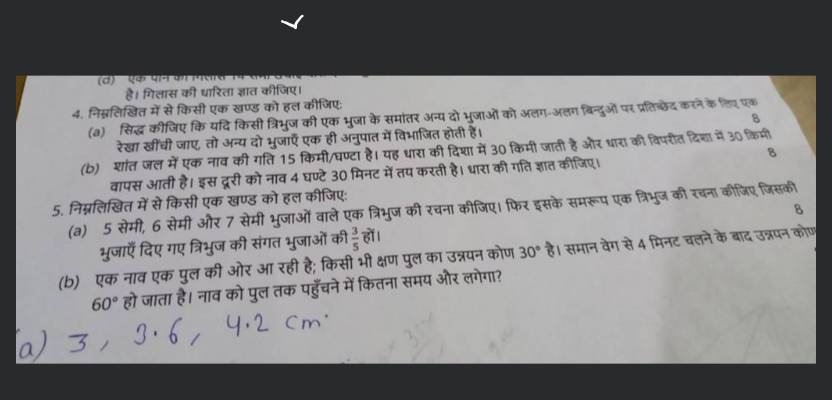 (d) एक पानी का गिलास 14 सेमी
है। गिलास की धारिता ज्ञात कीजिए।
4. निम्नलिखित में से किसी एक खण्ड को हल कीजिएः
(a) सिद्ध कीजिए कि यदि किसी त्रिभुज की एक भुजा के समांतर अन्य दो भुजाओं को अलग-अलग बिन्दुओं पर प्रतिच्छेद करने के लिए एक
रेखा खींची जाए, तो अन्य दो भुजाएँ एक ही अनुपात में विभाजित होती हैं। 8
(b) शांत जल में एक नाव की गति 15 किमी/घण्टा है। यह धारा की दिशा में 30 किमी जाती है और धारा की विपरीत दिशा में 30 किमी
वापस आती है। इस दूरी को नाव 4 घण्टे 30 मिनट में तय करती है। धारा की गति ज्ञात कीजिए। 8
5. निम्नलिखित में से किसी एक खण्ड को हल कीजिएः
(a) 5 सेमी, 6 सेमी और 7 सेमी भुजाओं वाले एक त्रिभुज की रचना कीजिए। फिर इसके समरूप एक त्रिभुज की रचना कीजिए जिसकी
भुजाएँ दिए गए त्रिभुज की संगत भुजाओं की 3/5 हों। 8
(b) एक नाव एक पुल की ओर आ रही है; किसी भी क्षण पुल का उन्नयन कोण 30° है। समान वेग से 4 मिनट चलने के बाद उन्नयन कोण
60° हो जाता है। नाव को पुल तक पहुँचने में कितना समय और लगेगा?
a) 3, 3.6, 4.2 cm.